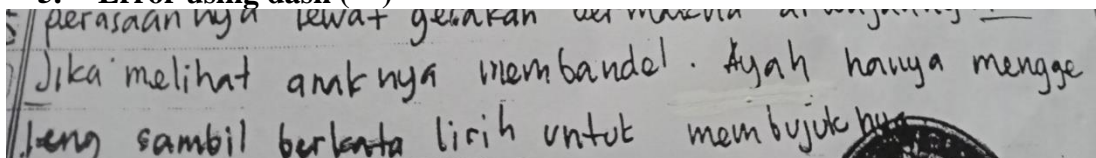 perasaannya lewat gerakan
Jika melihat anaknya membandel. Ayah hanya mengge
leng sambil berkata lirih untuk membujuknya